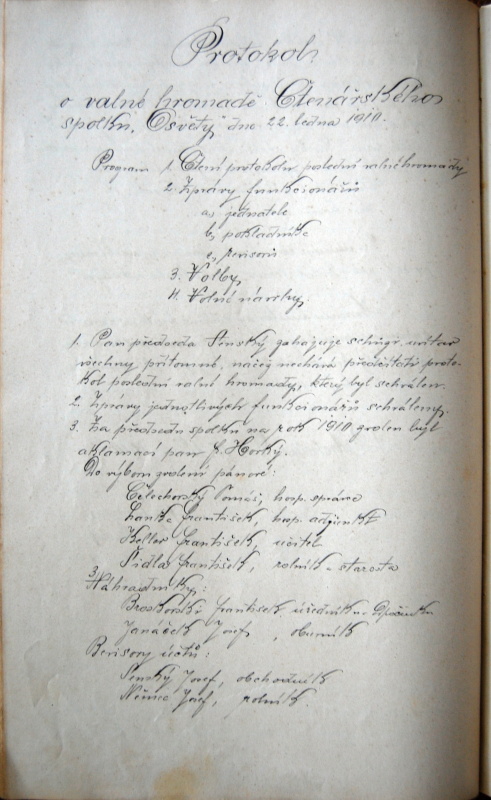 Protokol
o valné hromadě Čtenářského
spolku „Osvěty" dne 22. ledna 1910.
Program 1. Čtení protokolu poslední valné hromady
2. Zprávy funkcionářů
a, jednatele
b, pokladníka
c, revisorů
3. Volby,
4. Volné návrhy.
1. Pan předseda Senský zahajuje schůzi, uvítav
všechny přítomné, načež nechává předčítati proto-
kol poslední valné hromady, který byl schválen.
2. Zprávy jednotlivých funkcionářů schváleny.
3. Za předsedu spolku na rok 1910 zvolen byl
aklamací pan Horký.
Do výboru zvoleni pánové:
Čelechovský Tomáš, hosp. správce
František, hosp. adjunkt
Keller František, učitel
Šidla František, rolník a starosta
3 Náhradníky:
František úředník
Janáček Josef, obuvník
Revisory účtů:
Senský Josef, obchodník
Němec Josef, rolník.